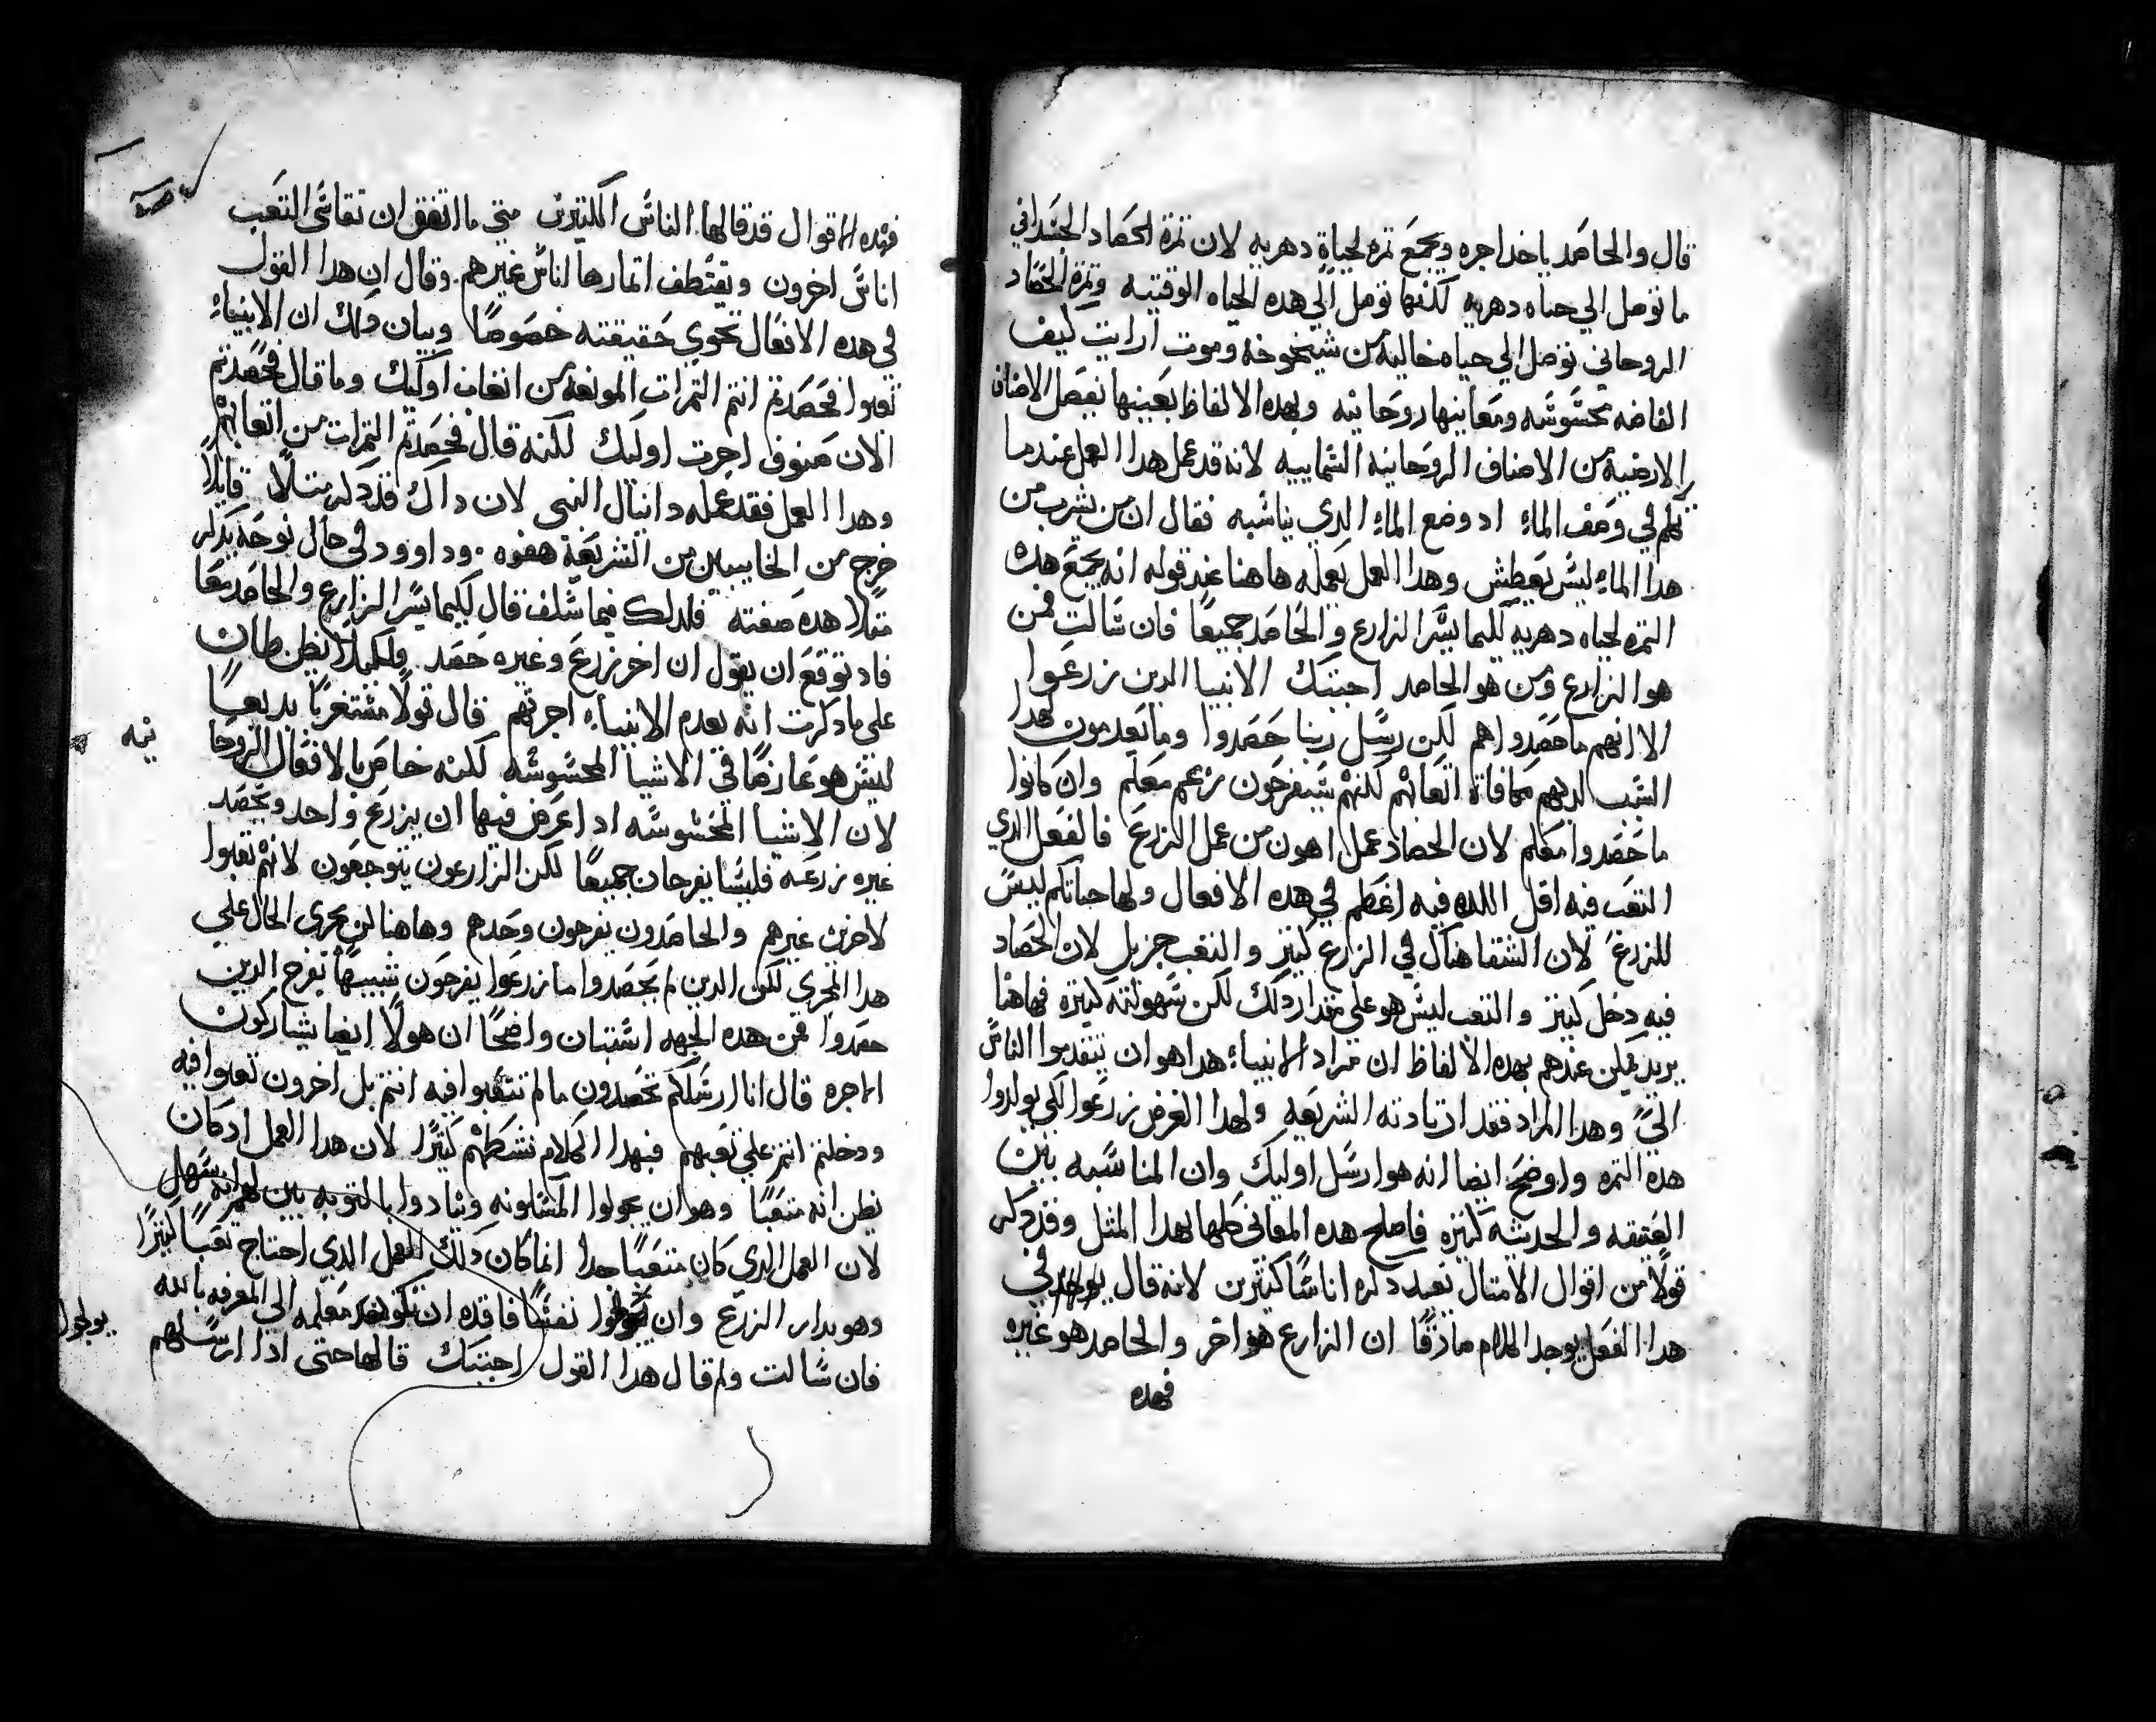 قال والحاصد ياخد اجره ويجمع تمره لحياة دهريه لان تمرة الحصاد الجسداني
ما توصل الي حياه دهريه لكنها توصل الي هده الحياه الوقتيه وتمرة الحصاد
الروحاني توصل الي حياه خاليه من شيخوخه وموت ارايت كيف
الفاضه محسوسه ومعانيها روحانيه وبهده الالفاظ بعينها تفصل الاصناف
الارضيه من الاصناف الروحانيه السماييه لانه قد عمل هدا العمل عندما
تكلم في وصف الماء اد وضع الماء الدي يناسبه فقال ان من يشرب من
هدا الماء ليس يعطش وهدا العمل يعمله هاهنا عند قوله انه يجمع هده
التمره لحياه دهريه لكيما يسر الزارع والحاصد جميعا فان سالت فمن
هو الزارع ومن هو الحاصد اجبتك الانبيا الدين زرعوا
الا انهم ما حصدوا هم لكن رسل ربنا حصدوا وما يعدمون لهدا
السبب لديهم مكافاة اتعابهم لكنهم سيفرحون معكم وان كانوا
ما حصدوا معكم لان الحصاد عمل اهون من عمل الزرع فالفعل الدي
التعب فيه اقل اللده فيه اعظم في هده الافعال ولها حباتكم ليس
للزرع لان الشقا هناك في الزارع كتير والتعب جزيل لان الحصاد
فيه دخل كتير والتعب ليس هو علي مقدار دلك لكن سهولته كتيره فهاهنا
يريد يمكن عندهم بهده الالفاظ ان مراد الانبياء هدا هو ان يتقدموا الناس
الي وهدا المراد فقد ارتادته الشريعه ولهدا الغرض زرعوا لكي يولدوا
هده التمره واوضح ايضا انه هو ارسل اوليك وان المناسبه بين
العتيقه والحديته كتيره فاصلح هده المعاني كلها بهدا المتل وقد دكر
قولا من اقوال الامتال تعيد دكره اناسا كتيرين لانه قال في
هدا الفعل يوجد الكلام صادقا ان الزارع هو اخر والحاصد هو غيره
فهده
فهده الاقوال قد قالها الناس الكتيرين متي ما اتفق ان تقاسي التعب
اناس اخرون ويقتطف اتمارها اناس غيرهم وقال ان هدا القول
في هده الافعال تحوي حقيقته خصوصا وبيان دلك ان الانبياء
تعبوا فحصدتم انتم التمرات المونعه من اتعاب اوليك وما قال فحصدتم
الان صنوف اجرت اوليك لكنه قال فحصدتم التمرات من اتعابهم
وهدا العمل فقد عمله دانيال النبي لان داك قد دكر متلا قايلا
خرج من الخايبين من الشريعة هفوه وداوود في حال نوحه يدكر
متلا هده صفته فلدلك فيما سلف قال لكيما يسر الزارع والحاصد معا
فاد توقع ان يقول ان اخر زرع وغيره حصد ولكيلا يظن ظان
علي ما دكرت انه يعدم الانبياء اجرتهم قال قولا مستغربا بديعا
ليس هو عارضا في الاشيا المحسوسه لكنه خاص بالافعال الروحا
نيه
لان الاشيا المحسوسه ادا عرض فيها ان يزرع واحد ويحصد
غيره زرعه فليسا يفرحان جميعا لكن الزارعون يتوجعون لانهم تعبوا
لاخرين غيرهم والحاصدون يفرحون وحدهم وهاهنا لن يجري الحال علي
هدا المجري لكن الدين لم يحصدوا ما زرعوا يفرحون شبيها بفرح الدين
حصدوا فمن هده الجهه استبان واضحا ان هولا ايضا يشاركون
الاجره قال انا ارسلكم تحصدون ما لم تتعبوا فيه انتم بل اخرون تعبوا فيه
ودخلتم انتم علي تعبهم فبهدا الكلام نشطهم كتيرا لان هدا العمل اد كان
يظن انه متعبا وهو ان يجولوا المسكونه وينادوا بالتوبه بين لهم انه سهل
لان العمل الدي كان متعبا جدا انما كان دلك العمل الدي احتاج تعبا كتيرا
وهو بدار الزرع وان يولجوا نفسا فاقده ان تكون معلمه الي المعرفه بالله
يولجوا
فان سالت ولم قال هدا القول اجبتك قالها حتي ادا ارسلهم